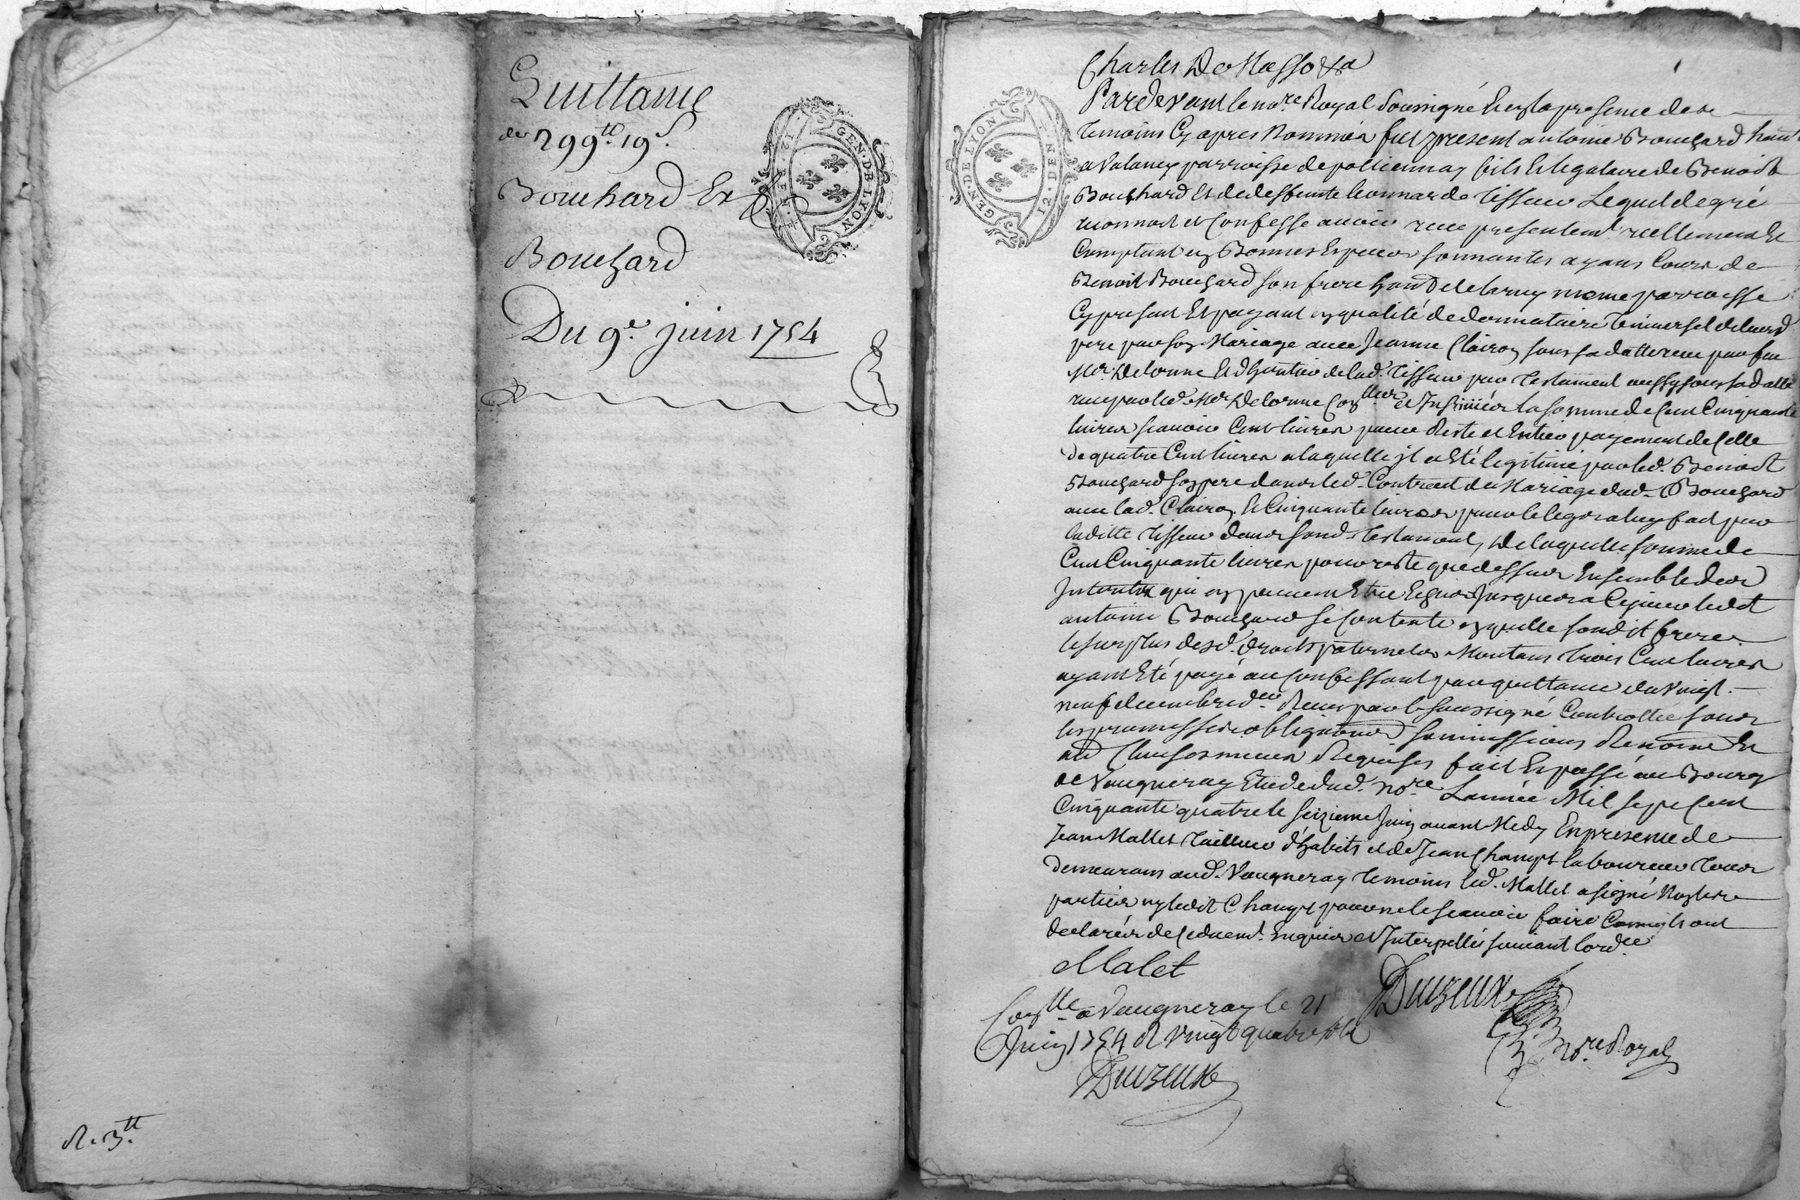 Quittance
de 299tt 19s
Bouchard Et
Bouchard
Du 9e juin 1754
R. 3tt
GEN. DE LYON
12 DEN.
GEN. DE LYON
12 DEN.
Charles De Masso &a
Pardevant le nore Royal soussigné Et en la presence des
temoins Cy apres nommés fut present antoine Bouchard hant
a valancy parroisse de pollionnay fils Et legataire de Benoist
Bouchard Et de deffunte leonnarde Tisseur Lequel de gré
reconnoit et Confesse avoir receu presentemt reellement Et
Comptant en Bonnes Especes sonnantes ayans Cours de
Benoit Bouchard son frere hant de larny meme parroisse
Cy present Et payant en qualité de donnataire universel de leurd
pere par son Mariage avec Jeanne Clairon sous sa datte receu par feu
Me Delorme Et d'heritier de lad. Tisseur par testament aussy sous sa datte
receu par led. Me Delorme Conllés et Insinués la somme de Cent Cinquante
livres scavoir Cent livres pour Reste et Entier payement de Celle
de quatre Cent livres a laquelle il a Eté legitimé par led. Benoist
Bouchard son pere dans led. Contract de Mariage dud. Bouchard
avec lad. Clairon, Et Cinquante livres pour le legs a luy fait par
ladite Tisseur dans sond. testament, De laquelle somme de
Cent Cinquante livres pour reste que dessus Ensemble des
Interets qui en peuvent Etre Echus Jusques a Ce jour ledit
antoine Bouchard se Contente En quitte sondit frere
le surplus desd. droits paternels Montans trois Cent livres
ayant Eté payé au Confessant par quittance du vingt
neuf decembre der Receu par le soussigné Controllée sous
les promesses obligations soumissions Renonc. Et
Clauses Requises fait Et passé au Bourg
de Vaugneray Etude dud. nore L'année Mil sept Cent
Cinquante quatre le seizieme Juin avant Midy En presence de
Jean Mallet tailleur d'habits et de Jean Champt laboureur tous
demeurans aud. Vaugneray temoins led. Mallet a signé Non les
parties ny ledit Champt pour ne le scavoir faire Comm'ils ont
declarés de Ce duemt Enquis et Interpellés suivant l'ordce
Malet
Duizeux
nore Royal
Conllé a Vaugneray le 21
Juin 1754 R vingt quatre sols
Duizeux